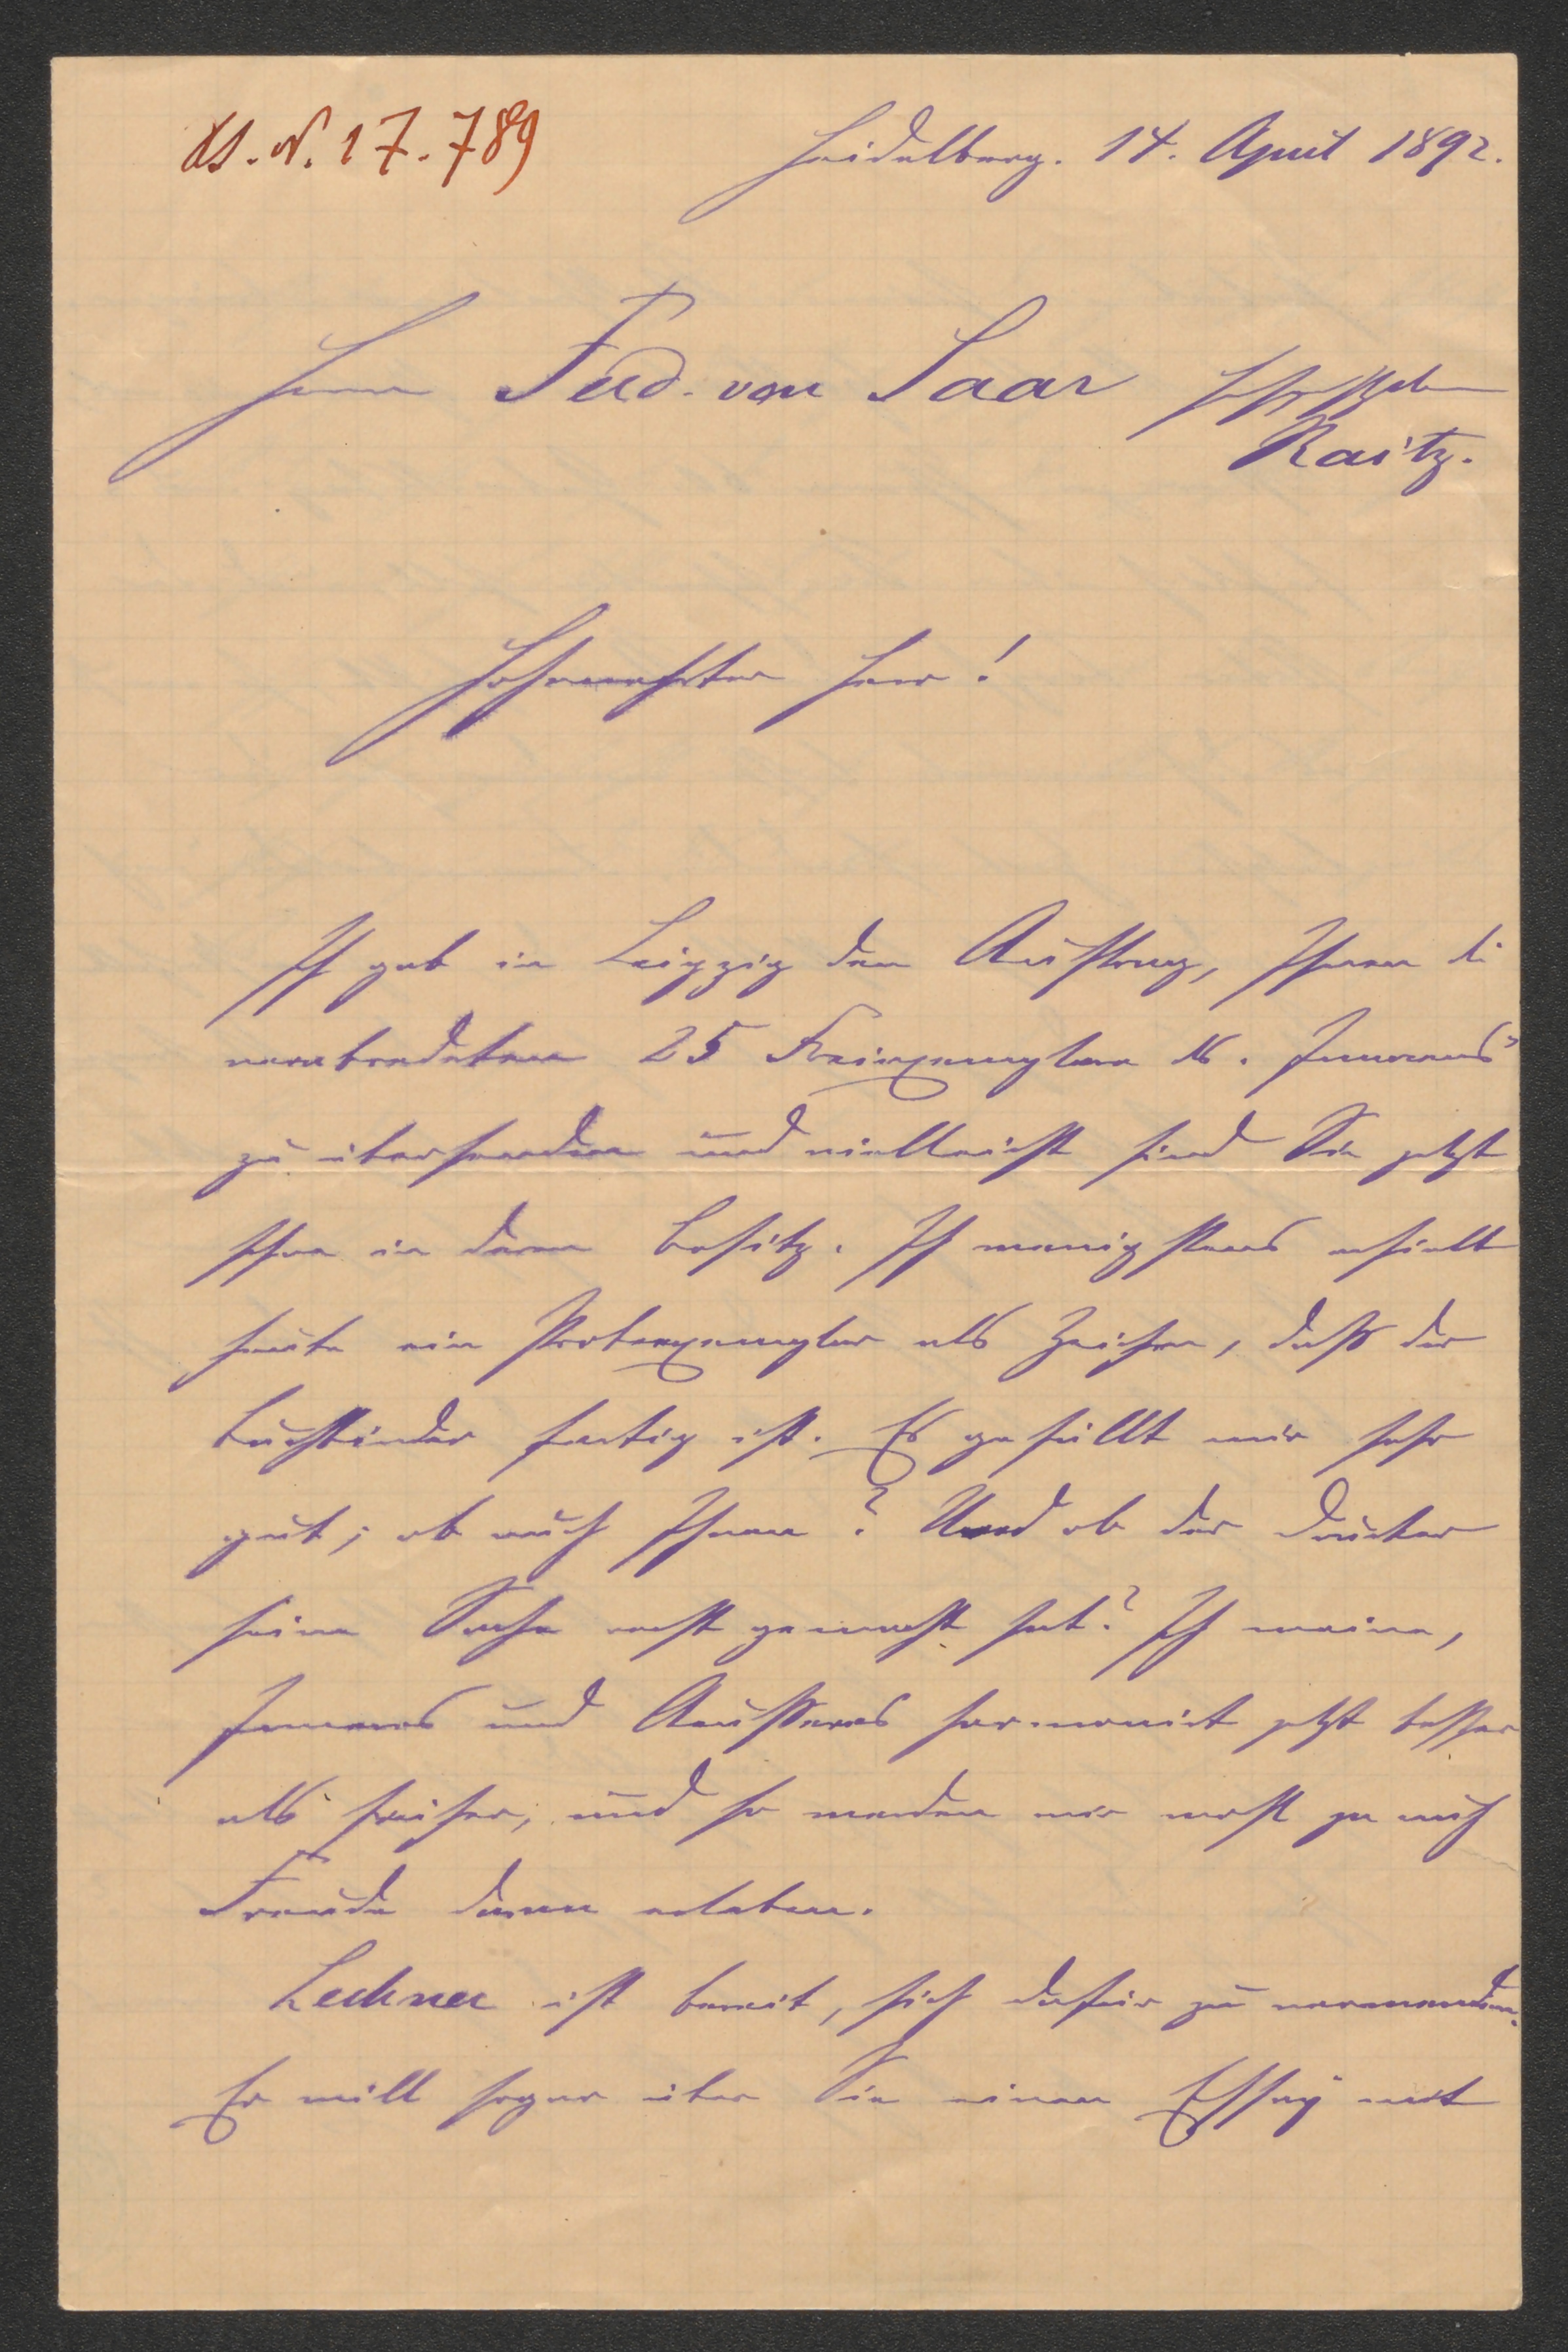 H.I.N. 17.789
Heidelberg. 14. April 1892.
Herrn Ferd. von Saar
Raitz.
Hochverehrter Herr!
Ich gab in Leipzig den Auftrag, Ihnen die
verabredeten 25 Freiexemplare
zu übersenden und vielleicht sind Sie jetzt
schon in deren Besitz. Ich wenigstens erhielt
heute ein Probeexemplar als Zeichen, daß der
Buchbinder fertig ist. Es gefällt mir sehr
gut; ob auch Ihnen? Und ob der Drucker
seine Sache recht gemacht hat? Ich meine,
Inneres und Aeußeres harmonirt jetzt besser
als früher, und so werden wir wohl ja auch
Freude daran erleben.
Lechner ist bereit, sich dafür zu verwenden.
Er will sogar über Sie einen Essay mit